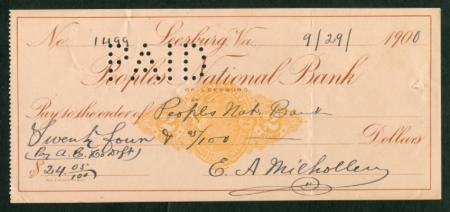 No. 1499 Leesburg, Va. 9/29/ 1900
PAID
Peoples National Bank
OF LEESBURG
Pay to the order of Peoples Nat. Bank
Twenty four & 05/100 Dollars
$ 24 05/100 E. A. Milhollen